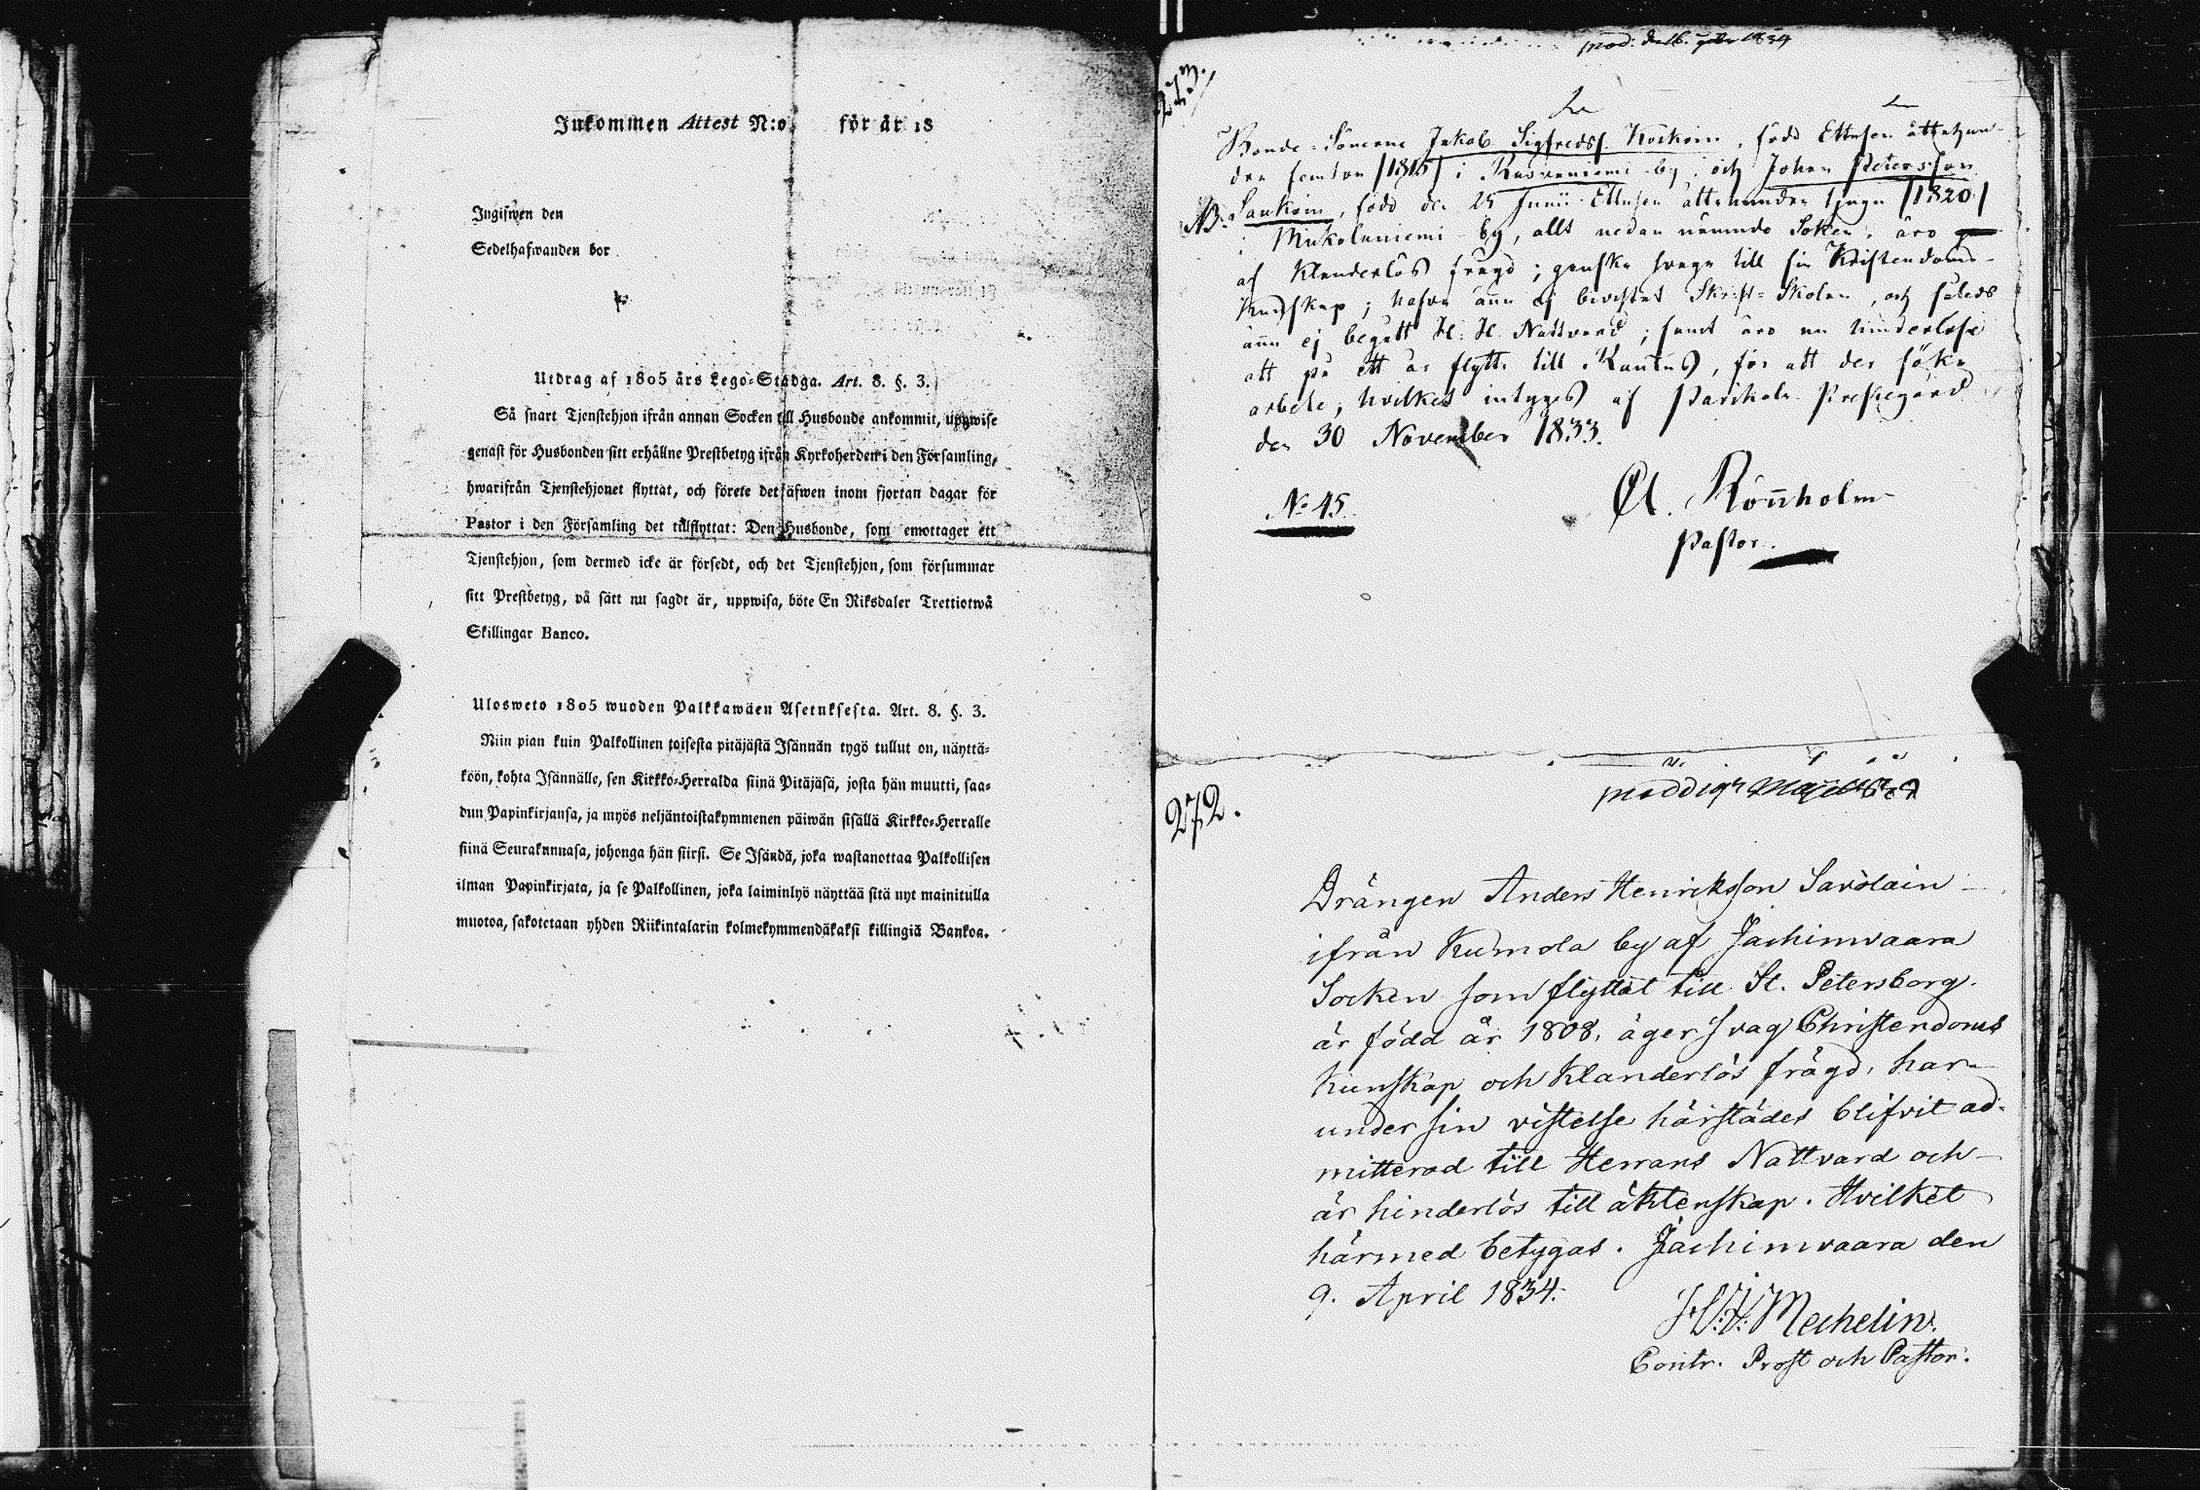 Inkommen Attest N:o för år 18
Ingifwen den
Sedelhafwanden bor
Utdrag af 1805 års Lego-Stadga. Art. 8. §. 3.
Så snart Tjenstehjon ifrån annan Socken till Husbonde ankommit, uppwise
genast för Husbonden sitt erhållne Prestbetyg ifrån Kyrkoherden i den Församling,
hwarifrån Tjenstehjonet flyttat, och förete det äfwen inom fjortan dagar för
Pastor i den Församling det tillflyttat: Den Husbonde, som emottager ett
Tjenstehjon, som dermed icke är försedt, och det Tjenstehjon, som försummar
sitt Prestbetyg, på sätt nu sagdt är, uppwisa, böte En Riksdaler Trettiotwå
Skillingar Banco.
Ulosweto 1805 wuoden Palkkawäen Asetuksesta. Art. 8. §. 3.
Niin pian kuin Palkollinen toisesta pitäjästä Isännän tygö tullut on, näyttä-
köön, kohta Isännälle, sen Kirkko-Herralda siinä Pitäjäsä, josta hän muutti, saa-
dun Papinkirjansa, ja myös neljäntoistakymmenen päiwän sisällä Kirkko-Herralle
siinä Seurakunnasa, johonga hän siirsi. Se Isändä, joka wastanottaa Palkollisen
ilman Papinkirjata, ja se Palkollinen, joka laiminlyö näyttää sitä nyt mainitulla
muotoa, sakotetaan yhden Riikintalarin kolmekymmendäkaksi killingiä Bankoa.
273.
1834
Bonde-Sönerne Jakob Sigfredss. Kockoin, född Ettusen åttahun-
dra femton /1815/ i by, och Johan Petersson
Saukoin, född den 25 Junii Ettusen åttahundra tjugu /1820/
i Mikolaniemi by, allt nedan nämnde Soken, äro
af Klanderlös frägd; ganska svage till sin Kristendoms-
kunskap; hafva ännu ej bevistat Skrift-Skolan, och således
ännu ej begått H. H. Nattvard; samt äro nu hinderlöse
att på ett år flytta till Rantus, för att der söka
arbete, hvilket intygas af Parikala Prestegård
den 30 November 1833.
No 45.
Ol. Rönnholm
Pastor.
272.
Drängen Anders Henriksson Savolain
ifrån Kumola by af Jachimvaara
Socken som flyttat till St. Petersborg.
är född år 1808, äger svag Christendoms
kunskap och Klanderlös frägd, har
under sin vistelse härstädes blifvit ad-
mitterad till Herrans Nattvard och
är hinderlös till äktenskap. Hvilket
härmed betygas. Jachimvaara den
9. April 1834.
Mechelin.
Contr. Prost och Pastor.